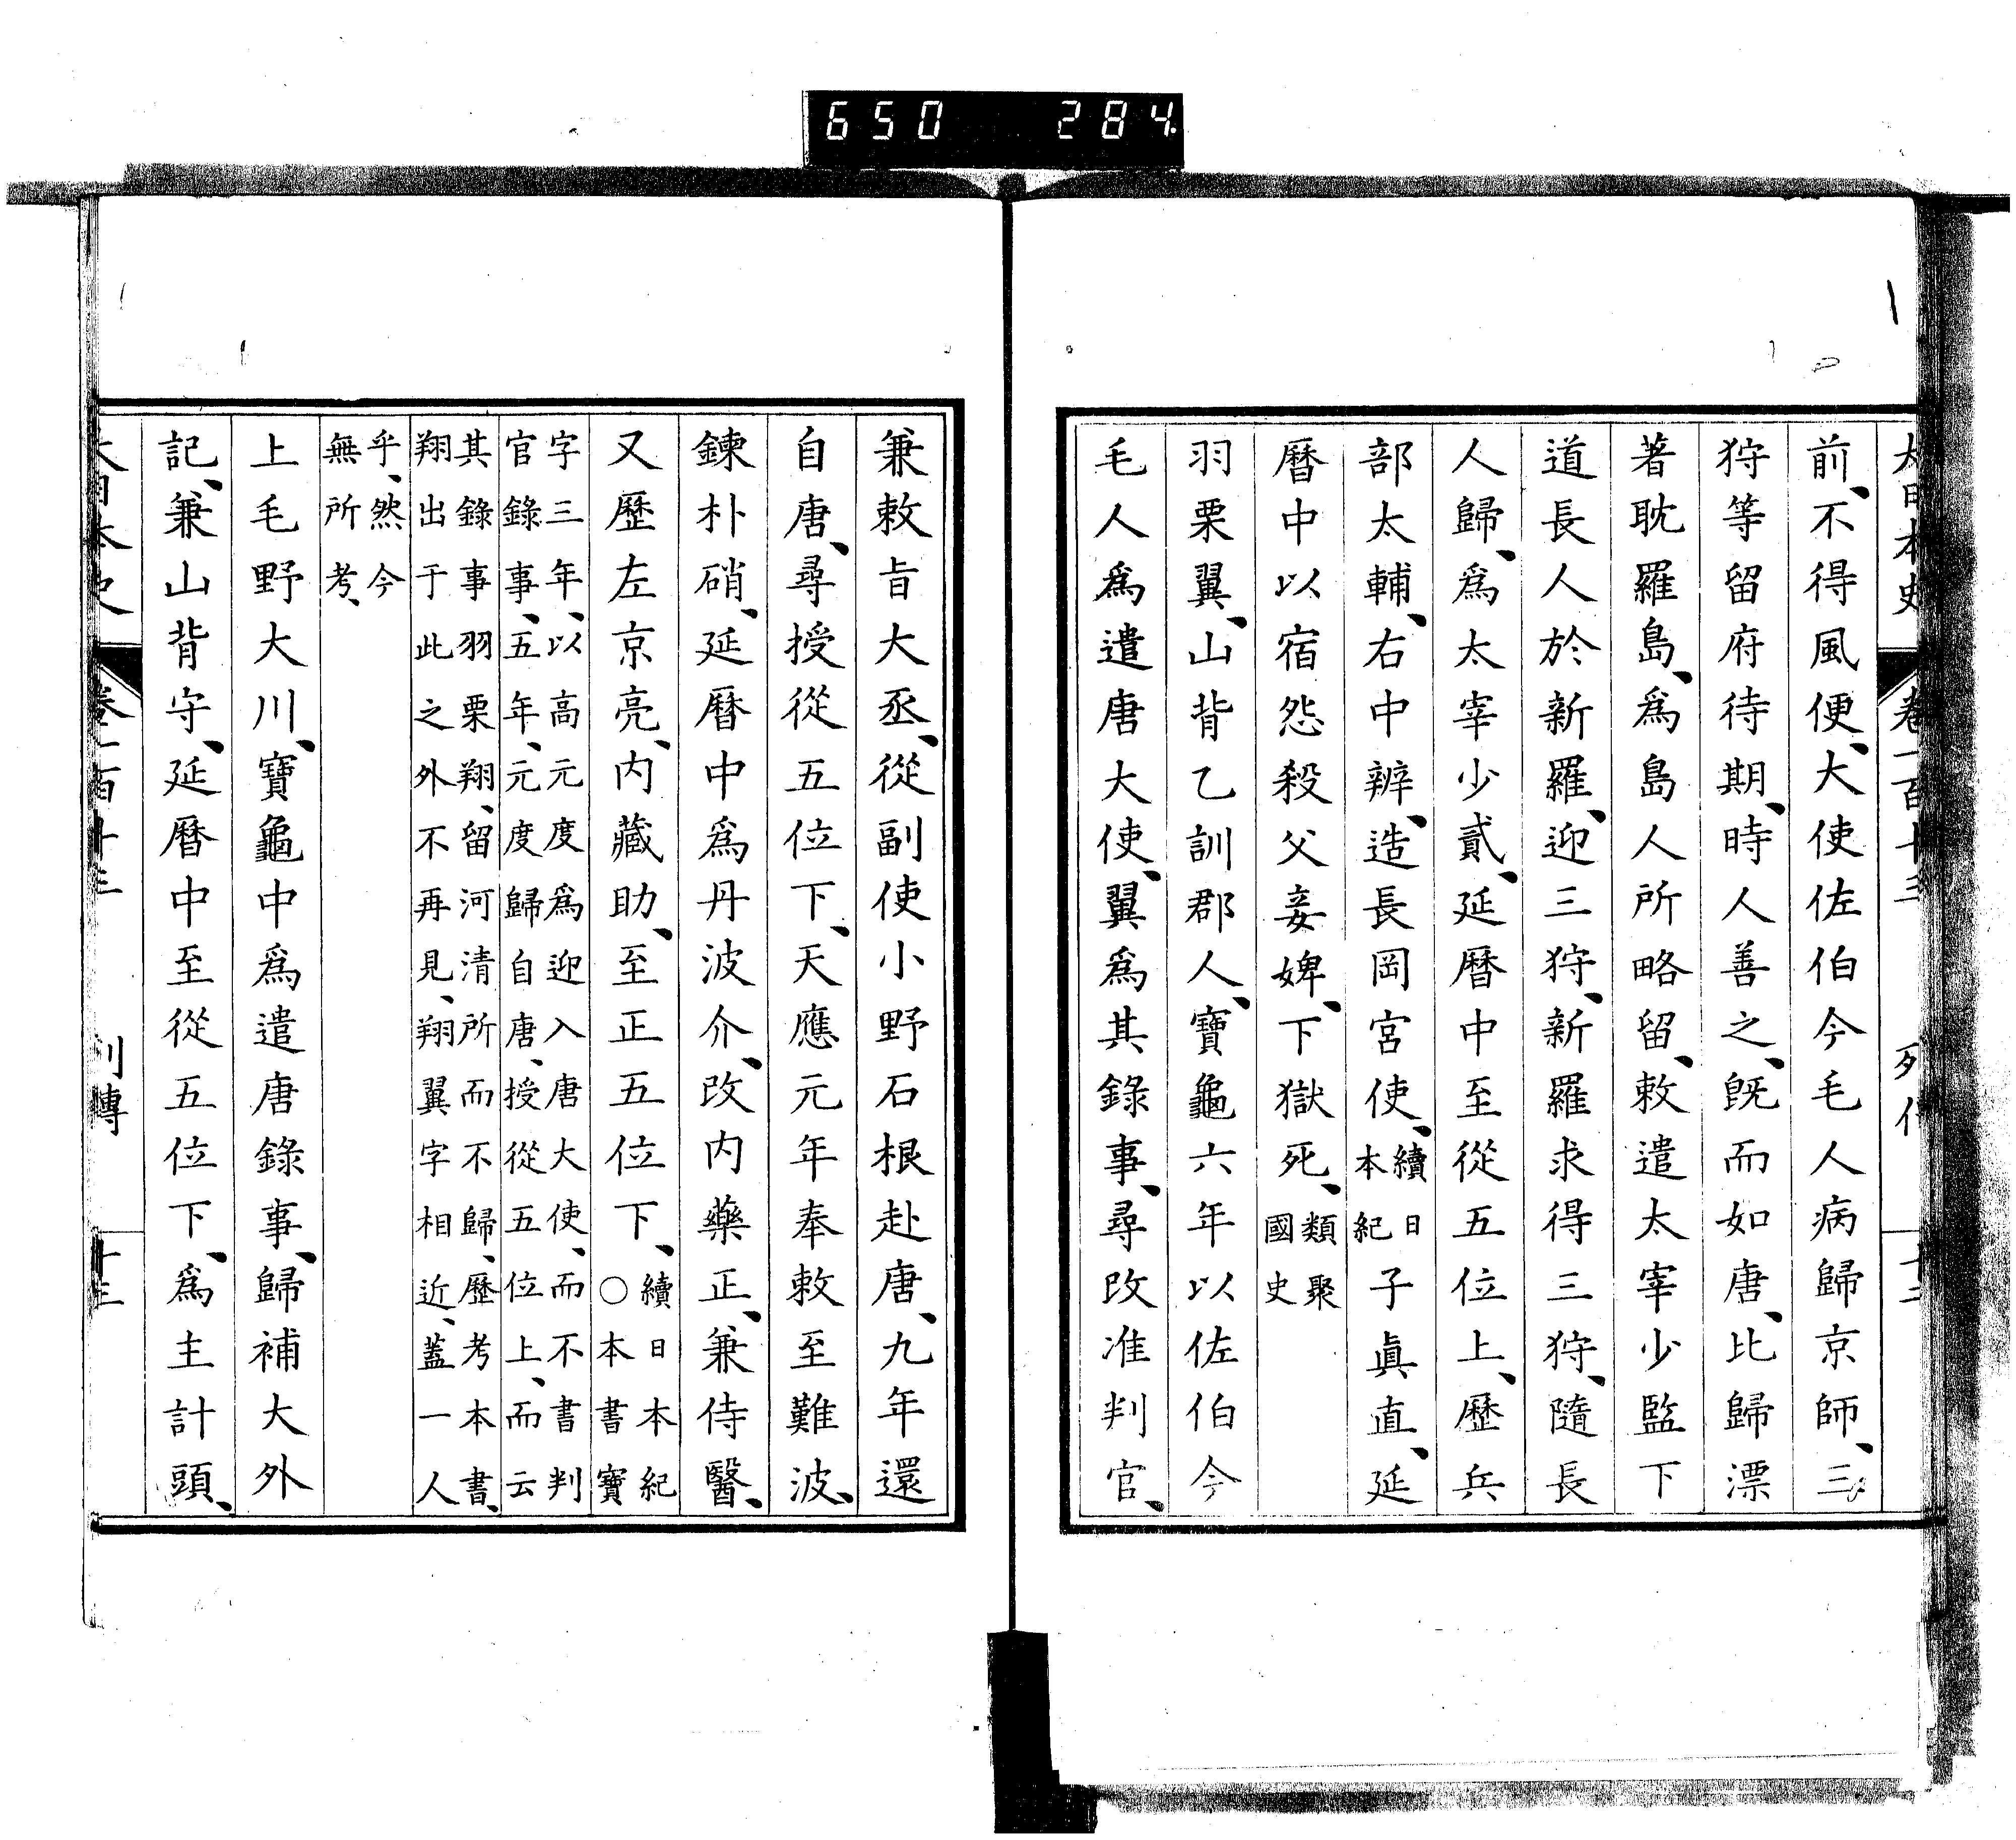 650 284
大日本史 卷一百十三 列傳 十二
前、不得風便、大使佐伯今毛人病歸京師、三
狩等留府待期、時人善之、既而如唐、比歸漂
著耽羅島、爲島人所略留、敕遣太宰少監下
道長人於新羅、迎三狩、新羅求得三狩、隨長
人歸、爲太宰少貳、延曆中至從五位上、歷兵
部太輔、右中辨、造長岡宮使、續日本紀子眞直、延
曆中以宿怨殺父妾婢、下獄死、類聚國史
羽栗翼、山背乙訓郡人、寶龜六年以佐伯今
毛人爲遣唐大使、翼爲其錄事、尋改准判官、
兼敕旨大丞、從副使小野石根赴唐、九年還
自唐、尋授從五位下、天應元年奉敕至難波、
鍊朴硝、延曆中爲丹波介、改内藥正、兼侍醫、
又歷左京亮、内藏助、至正五位下、續日本紀○本書寶
字三年、以高元度爲迎入唐大使、而不書判
官錄事、五年、元度歸自唐、授從五位上、而云
其錄事羽栗翔、留河清所而不歸、歷考本書、
翔出于此之外不再見、翔翼字相近、蓋一人
乎、然今
無所考、
上毛野大川、寶龜中爲遣唐錄事、歸補大外
記、兼山背守、延曆中至從五位下、爲主計頭、
大日本史 卷一百十三 列傳 十三